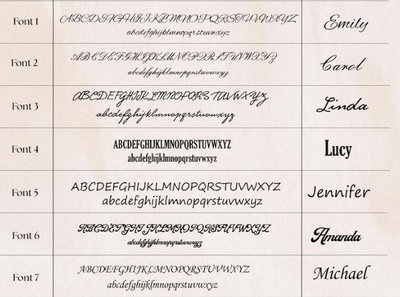 Font 1
ABCDEFGHIJKLMNOPQRSTUVWXYZ
abcdefghijklmnopqrstuvwxyz
Emily
Font 2
ABCDEFGHIJKLMNOPQRSTUVWXYZ
abcdefghijklmnopqrstuvwxyz
Carol
Font 3
ABCDEFGHIJKLMNOPQRSTUVWXYZ
abcdefghijklmnopqrstuvwxyz
Linda
Font 4
ABCDEFGHIJKLMNOPQRSTUVWXYZ
abcdefghijklmnopqrstuvwxyz
Lucy
Font 5
ABCDEFGHIJKLMNOPQRSTUVWXYZ
abcdefghijklmnopqrstuvwxyz
Jennifer
Font 6
ABCDEFGHIJKLMNOPQRSTUVWXYZ
abcdefghijklmnopqrstuvwxyz
Amanda
Font 7
ABCDEFGHIJKLMNOPQRSTUVWXYZ
abcdefghijklmnopqrstuvwxyz
Michael